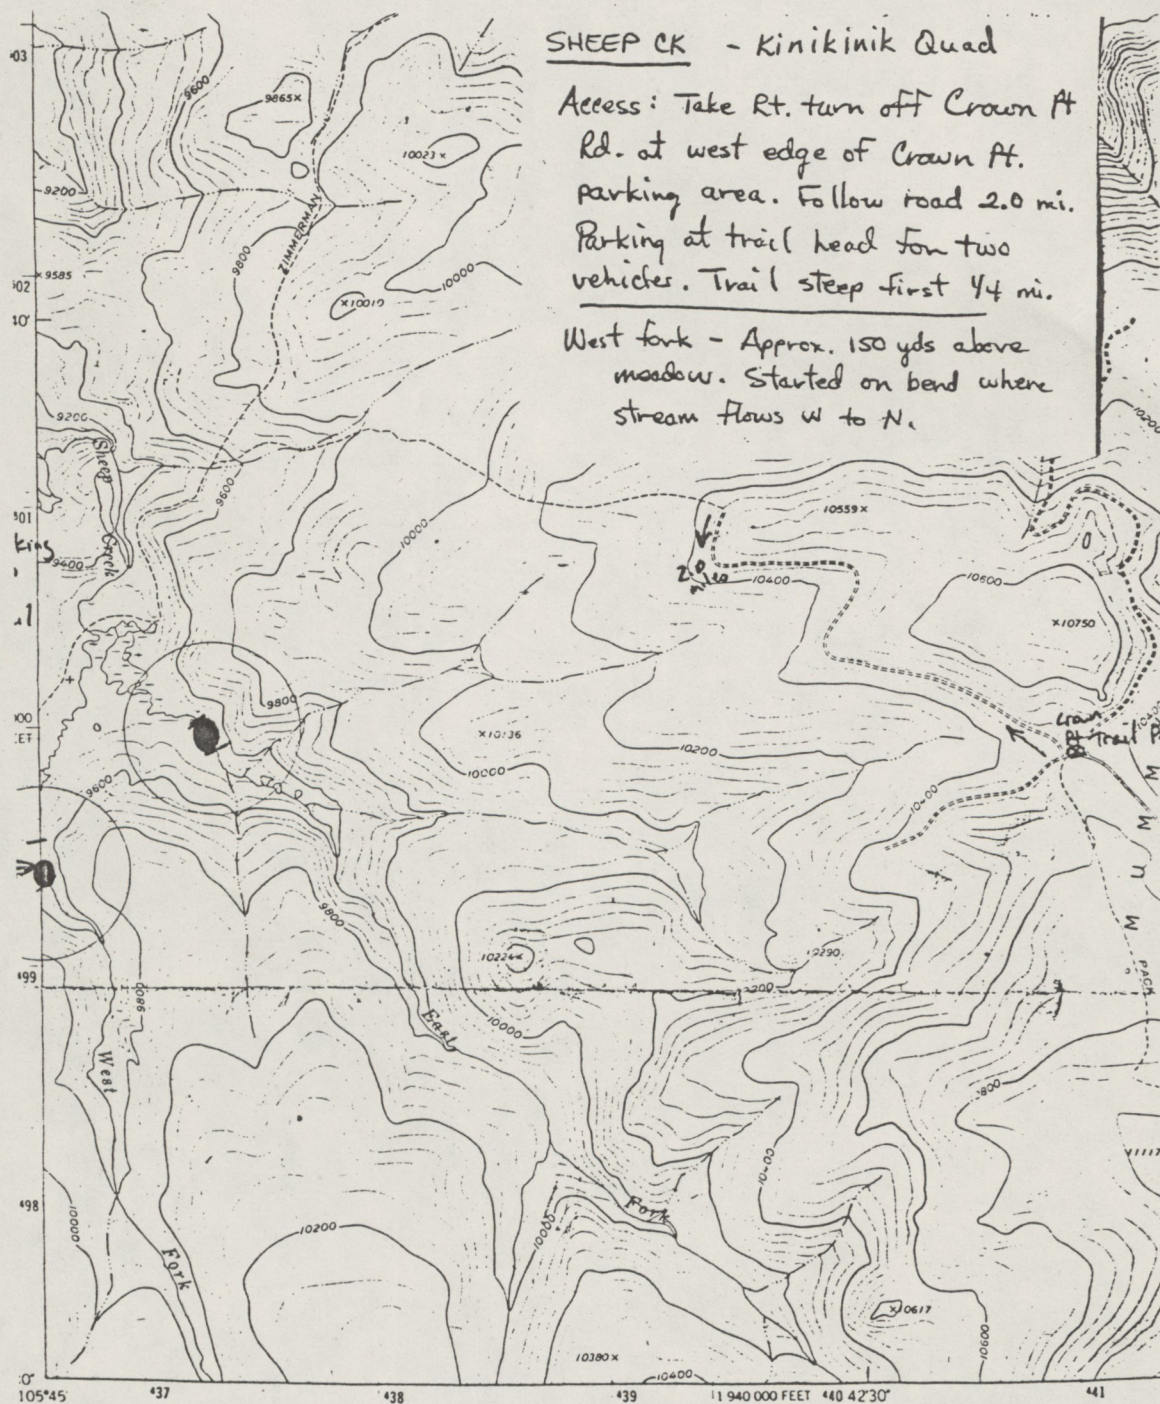 SHEEP CK - Kinikinik Quad
Access: Take Rt. turn off Crown Pt
Rd. at west edge of Crown Pt.
parking area. Follow road 2.0 mi.
Parking at trail head for two
vehicles. Trail steep first 1/4 mi.
West fork - Approx. 150 yds above
meadow. Started on bend where
stream flows W to N.
03
9600
9865×
10023×
9200
ZIMMERMAN
9800
10000
×9585
×10010
10'
9200
10200
Sheep
Creek
9600
10000
10559×
2.0
miles
10400
10600
×10750
9400
kins
9800
×10136
10200
10000
Crown
Pt Trail
9600
M
M
U
M
9800
10224×
10290
PACK
499
9800
10000
East
West
10400
498
10000
10200
10000
Fork
Fork
×10617
10380×
10400
10600
105°45'
437
438
439
1 940 000 FEET
440
42'30"
441